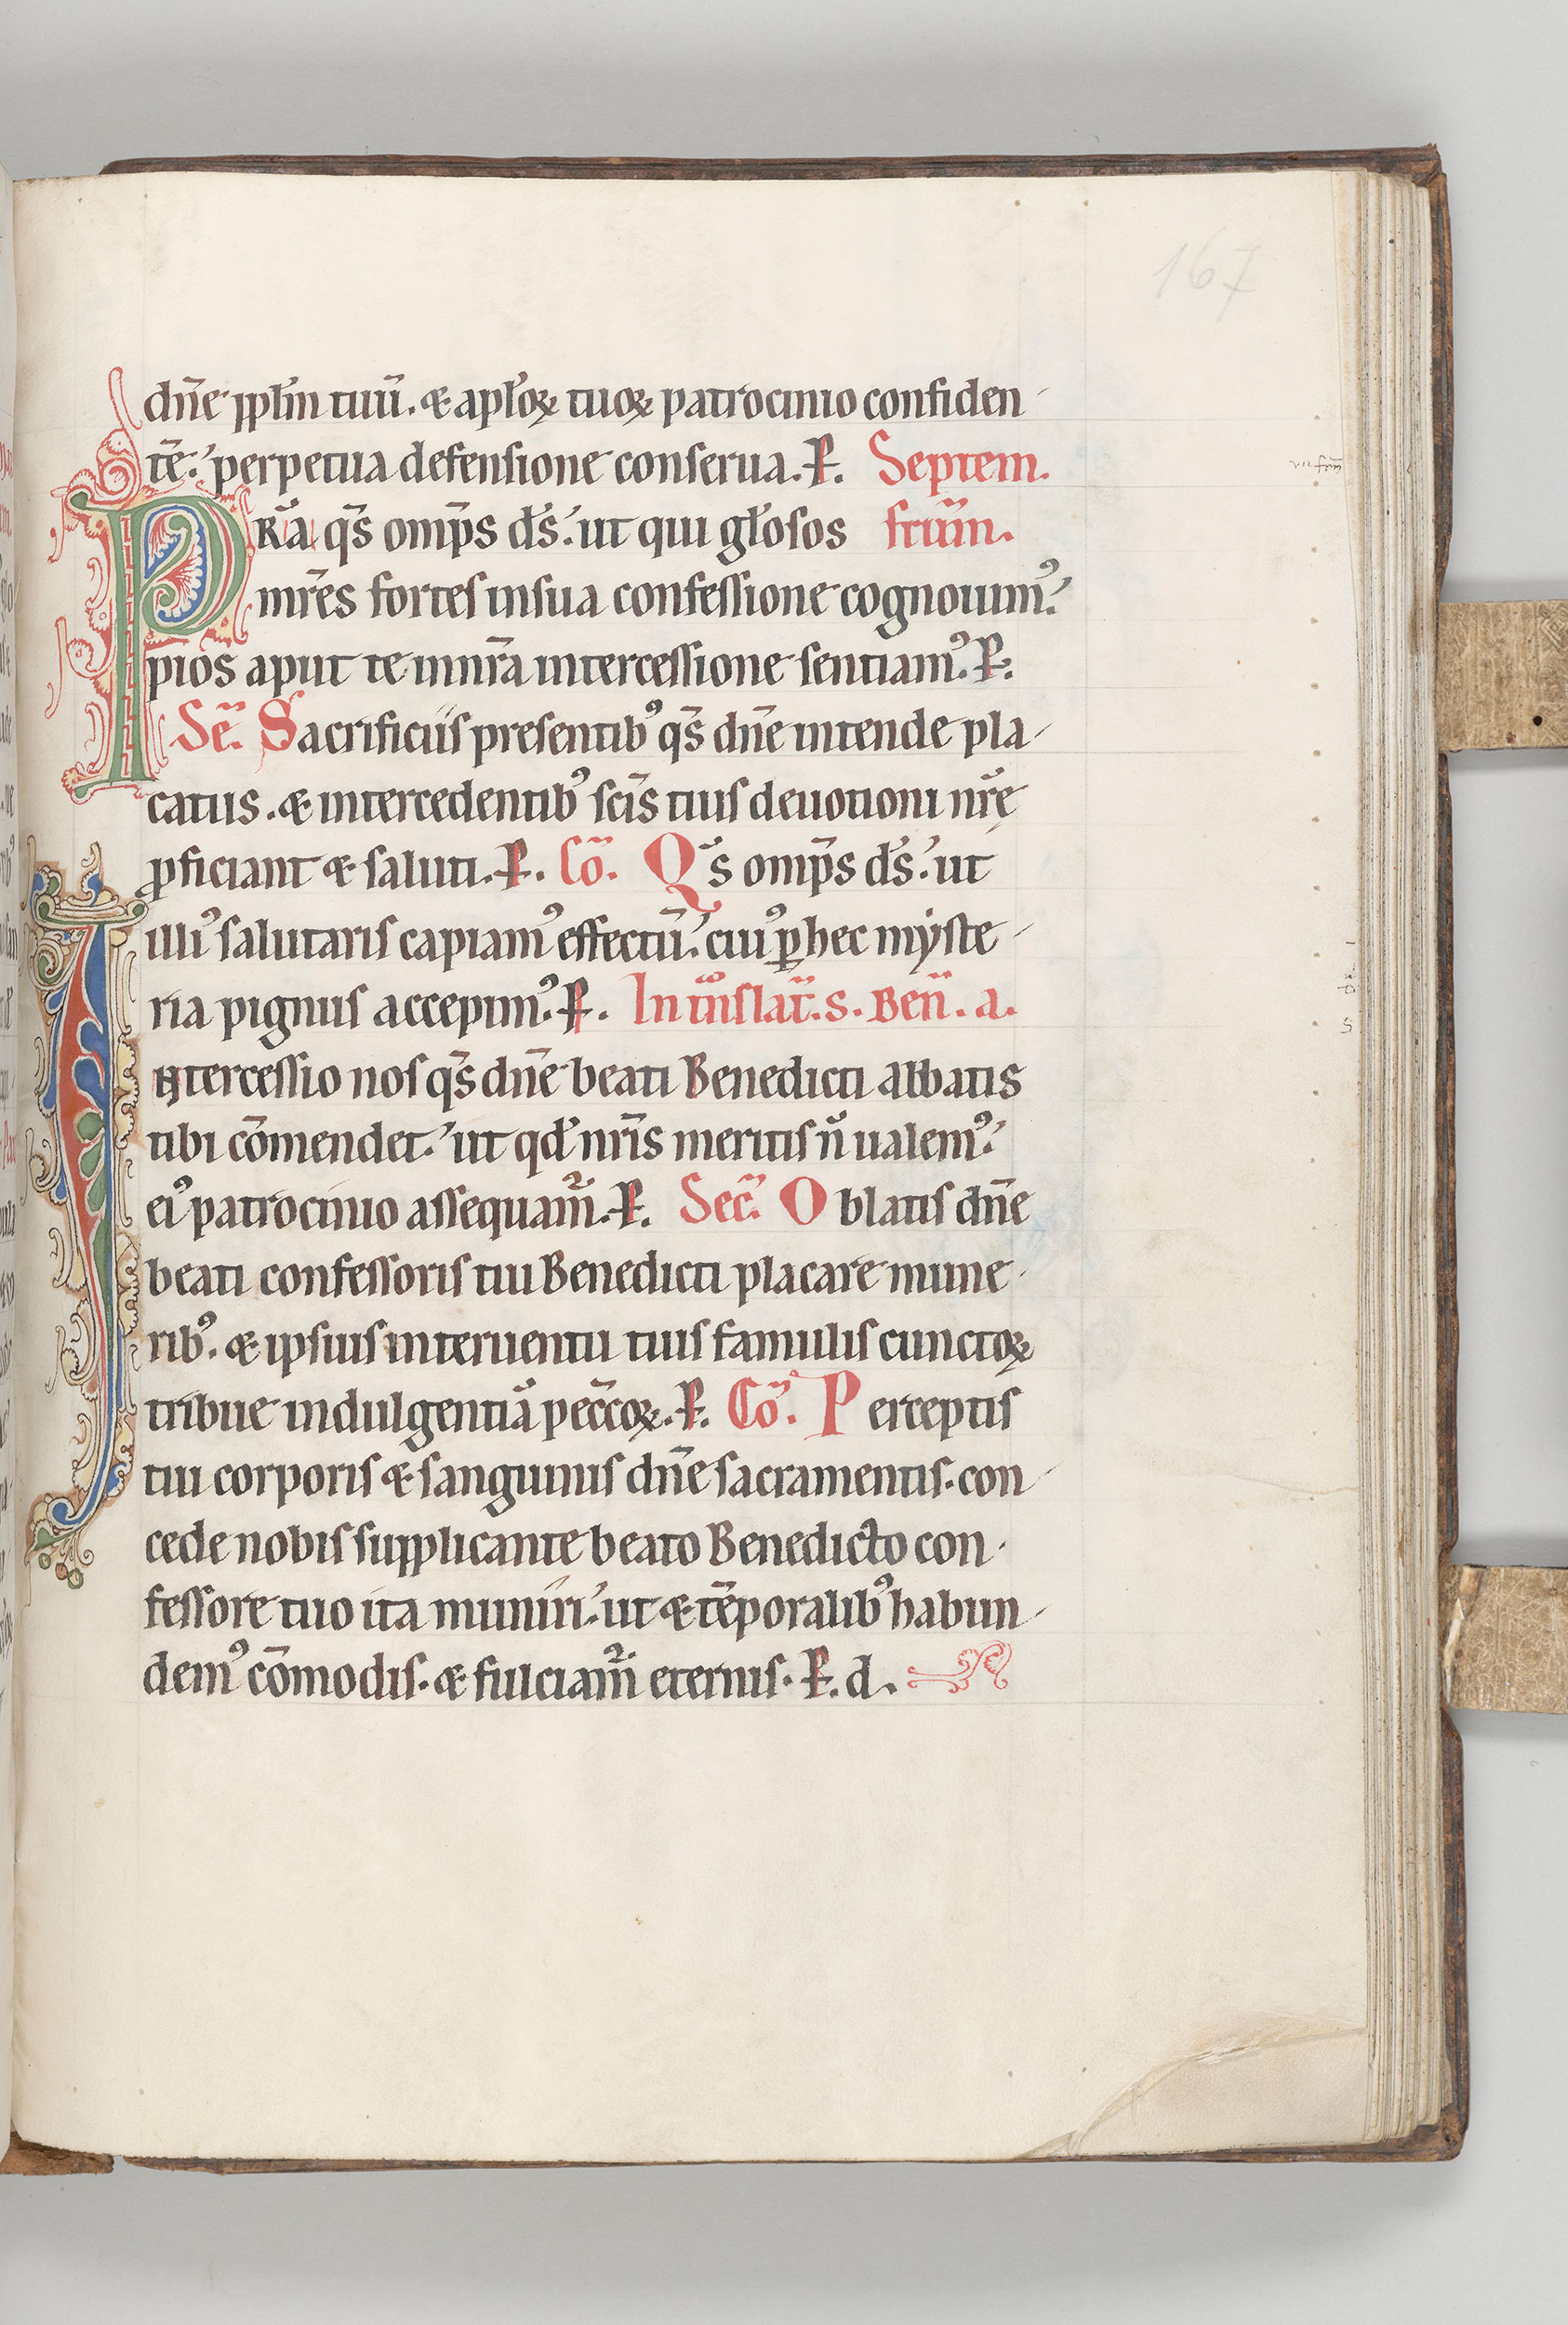 167
dn̄e ppl̄m tuū. & apl̄oꝝ tuoꝝ patrocinio confiden
tē: perpetua defensione conserua. P. Septem.
PRā qs̄ omp̄s ds̄: ut qui gl̄osos frūm.
mr̄es fortes in sua confessione cognouimꝰ:
pios aput te in nr̄a intercessione sentiamꝰ. P.
Sec̄. Sacrificiis presentibꝰ qs̄ dn̄e intende pla
catus. & intercedentibꝰ scīs tuis deuotioni nr̄ę
ꝓficiant & saluti. P. Cō. Qs̄ omp̄s ds̄: ut
illiꝰ salutaris capiamꝰ effectū: cuiꝰ ꝑ hec mẏste
ria pignus accepimꝰ. P. In tn̄slat̄. s. Ben̄. a.
Intercessio nos qs̄ dn̄e beati Benedicti abbatis
tibi cōmendet: ut qd̄ nr̄is meritis n̄ ualemꝰ:
eiꝰ patrocinio assequam̄. P. Sec̄. Oblatis dn̄e
beati confessoris tui Benedicti placare mune
ribꝰ. & ipsius interuentu tuis famulis cunctoꝝ
tribue indulgentiā pecc̄oꝝ. P. Cō. Perceptis
tui corporis & sanguinis dn̄e sacramentis. con
cede nobis supplicante beato Benedicto con
fessore tuo ita muniri: ut & tēporalibꝰ habun
demꝰ cōmodis. & fulciam̄ eternis. P. d.